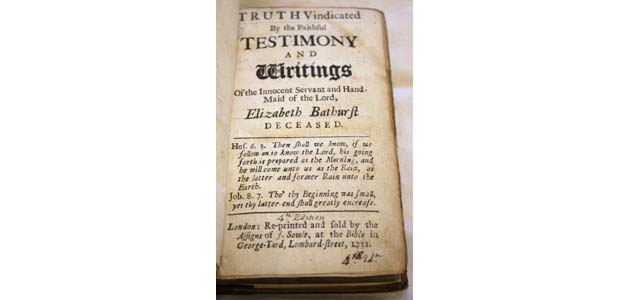 TRUTH Vindicated
By the Faithful
TESTIMONY
AND
Writings
Of the Innocent Servant and Hand-
Maid of the Lord,
Elizabeth Bathurſt
DECEASED.
Hoſ. 6. 3. Then ſhall we know, if we
follow on to know the Lord, his going
forth is prepared as the Morning, and
he will come unto us as the Rain, as
the latter and former Rain unto the
Earth.
Job. 8. 7. Tho' thy Beginning was ſmall,
yet thy latter end ſhall greatly encreaſe.
4th Edition
London: Re-printed and ſold by the
Aſſigns of J. Sowle, at the Bible in
George-Yard, Lombard-ſtreet, 1731.
4th Edn